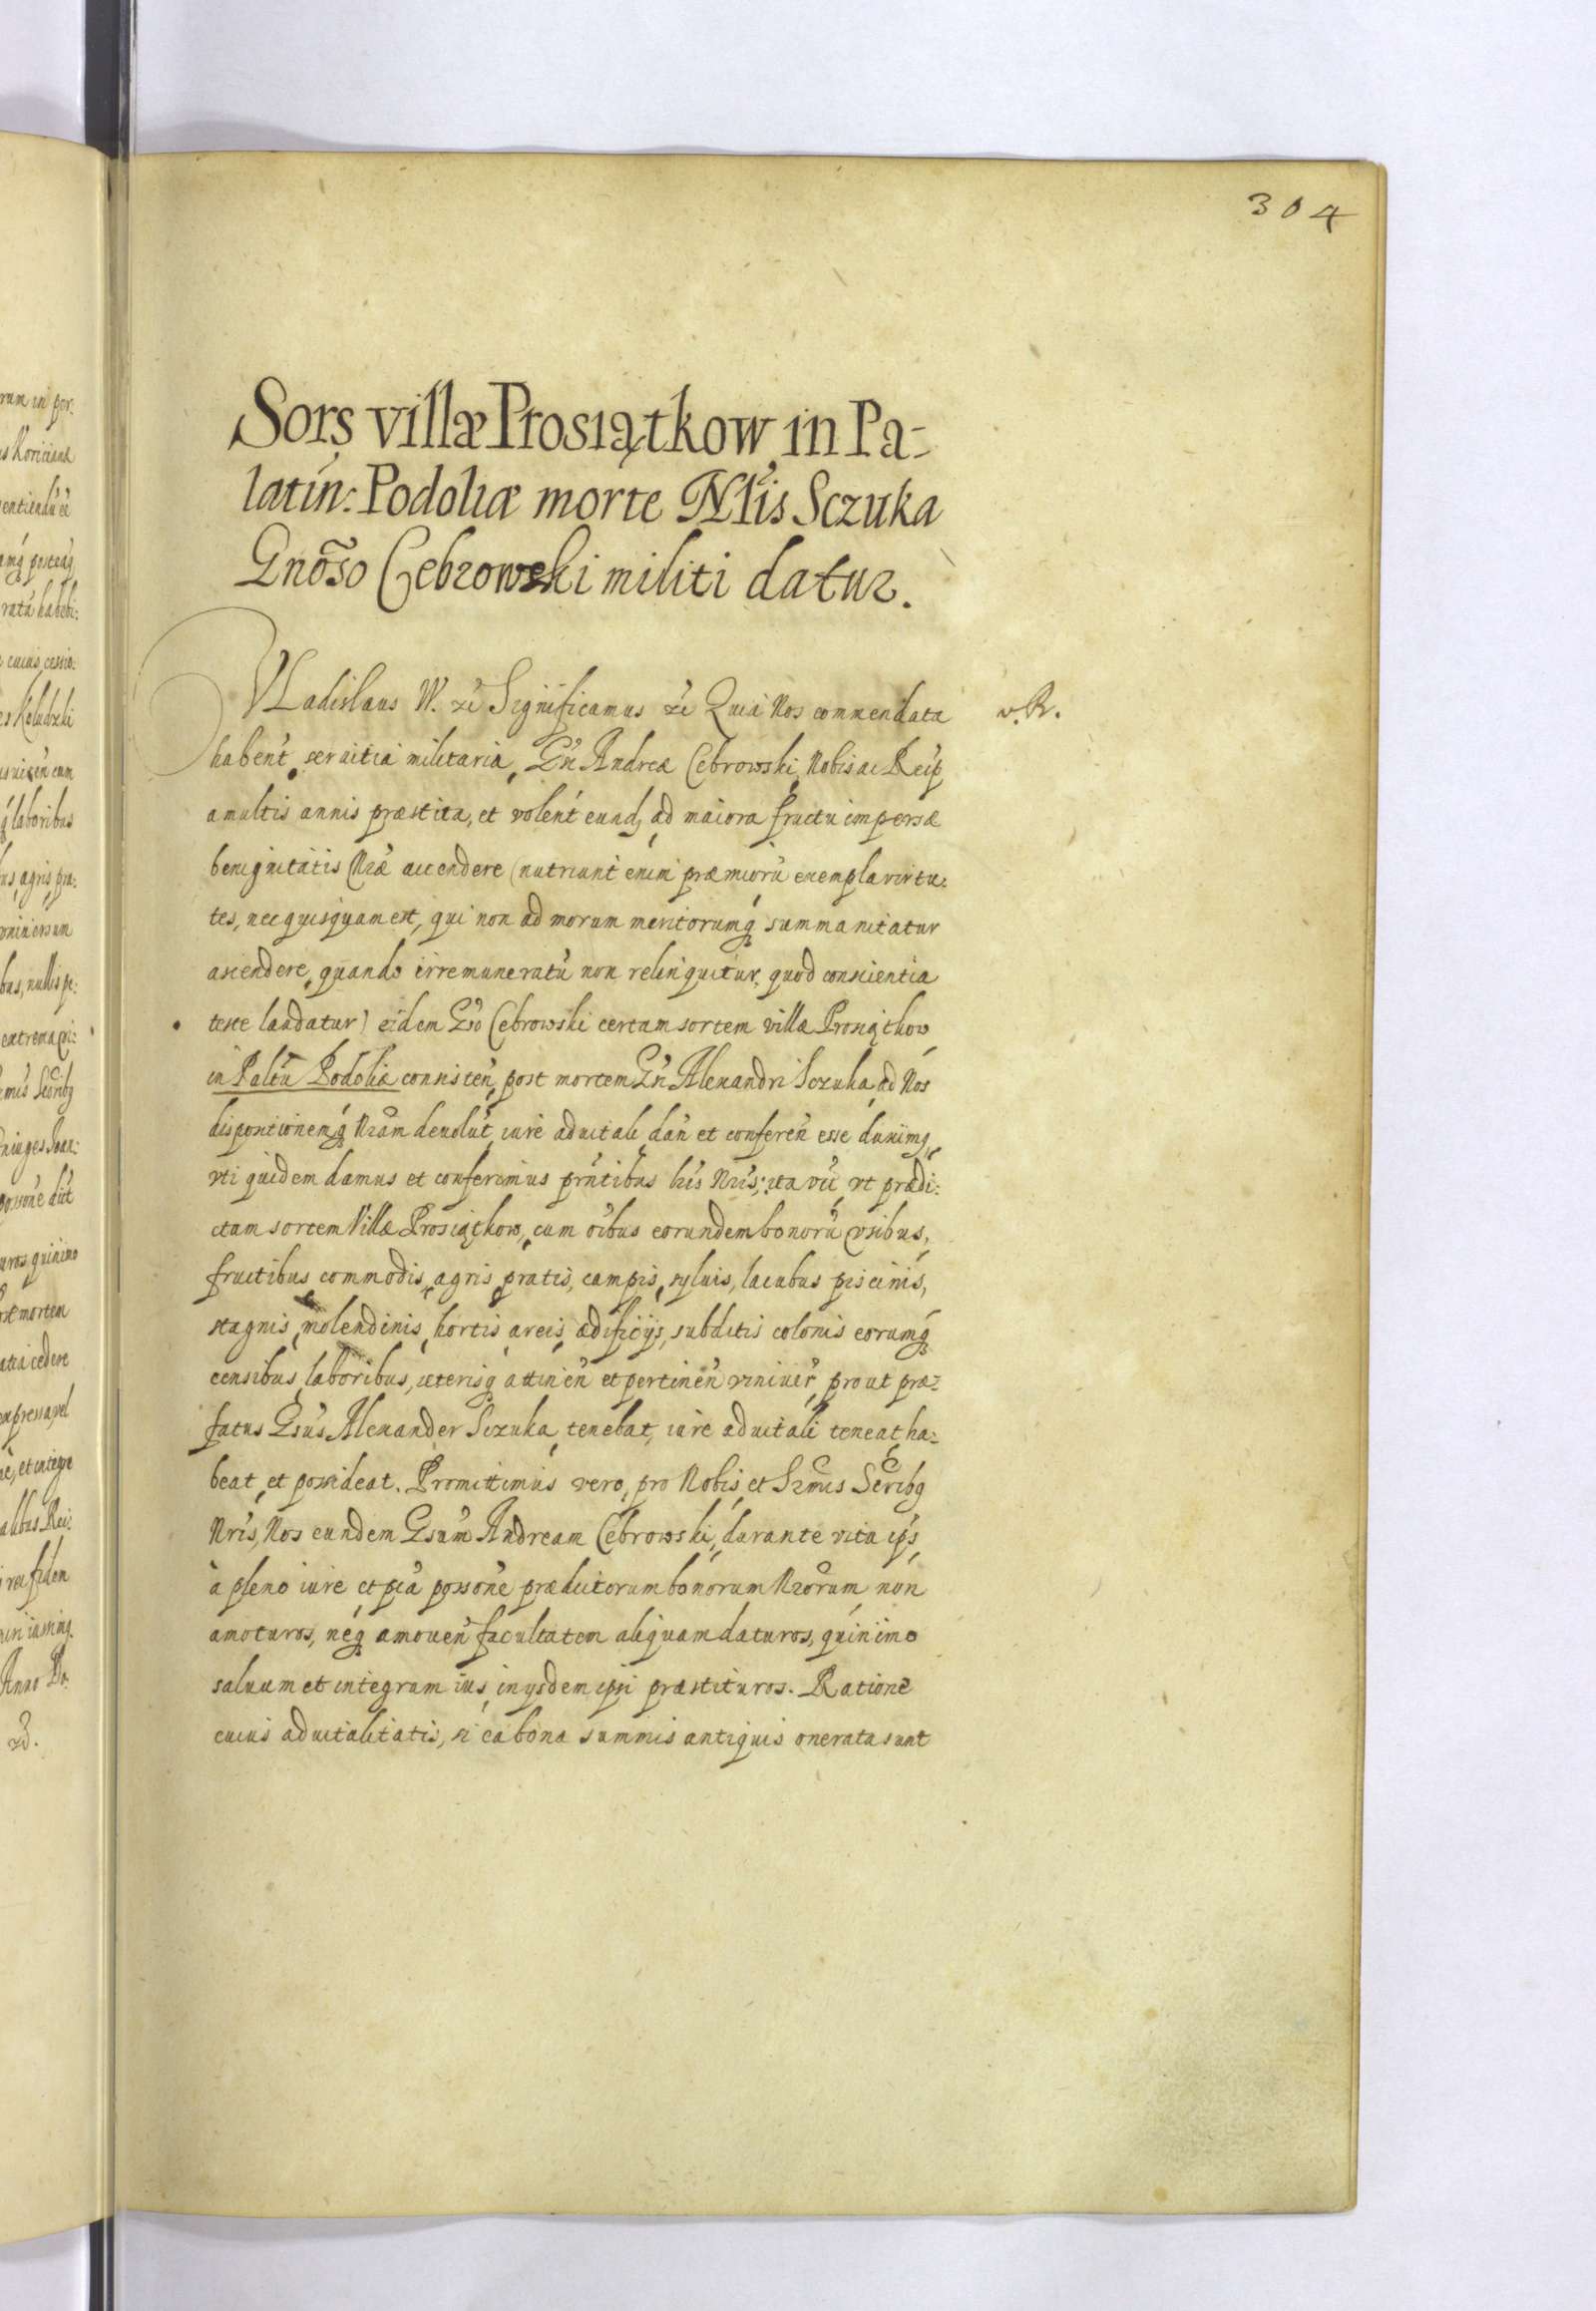 304
Sors villæ Prosiątkow in Pa-
latin: Podoliæ morte Nłis Sczuka
Gnõso Cebrowski militi datur.
VLadislaus IV. etc Significamus etc Quia Nos commendata
v. R.
habent seruitia militaria Gn Andreæ Cebrowski Nobis ac Reip
a multis annis præstita, et volent eund ad maiora fructu impensæ
benignitatis Nræ accendere (nutriunt enim præmiorũ exempla virtu:
tes, nec quisquam est, qui non ad morum meritorumq summa nitatur
ascendere, quando irremuneratũ non relinquitur, quod conscientia
teste laudatur) eidem Gso Cebrowski certam sortem villæ Prosiątkow
in Paltũ Podoliæ consisteñ post mortem Gñ Alexandri Sczuka, ad Nos
dispositionemq Nram deuolut, iure aduitali dañ et confereñ esse duximq,
vti quidem damus et conferimus pñtibus lris Nris; ita vti, vt prædi:
ctam sortem Villæ Prosiątkow, cum oibus eorundem bonorũ vsibus,
fructibus commodis, agris pratis, campis, syluis, lacubus piscinis,
stagnis, molendinis, hortis, areis, ædificijs, subditis colonis eorumq
censibus, laboribus, ceterisq attineñ et pertineñ vniuer, prout præ-
fatus Gsus Alexander Sczuka, tenebat, iure aduitali teneat, ha-
beat, et possideat. Promittimus vero, pro Nobis, et Srmis Sucribq
Nris, Nos eundem Gsum Andream Cebrowski, durante vita ips,
à pleno iure, et pca possone prædictorum bonorum Nrorum, non
amoturos, neq amoueñ facultatem aliquam daturos, quinimo
saluum et integrum ius, in ysdem ipsi præstituros. Ratione
cuius aduitalitatis, si ea bona summis antiquis onerata sunt